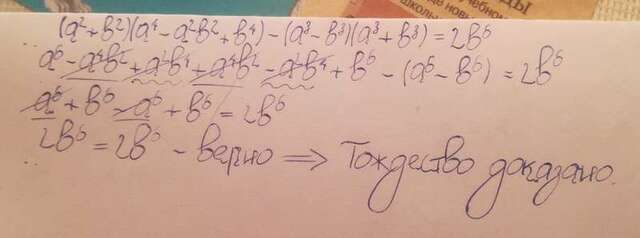 (a²+b²)(a⁴-a²b²+b⁴)-(a³-b³)(a³+b³)=2b⁶
a⁶-a⁴b²+a²b⁴+a⁴b²-a²b⁴+b⁶-(a⁶-b⁶)=2b⁶
a⁶+b⁶-a⁶+b⁶=2b⁶
2b⁶=2b⁶-верно⟹Тождество доказано.